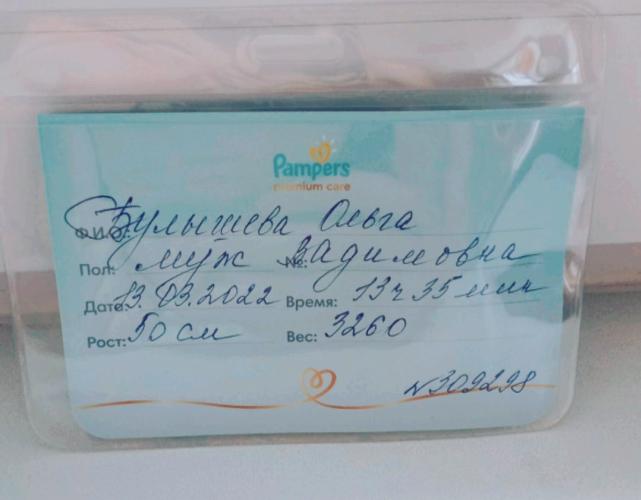 Pampers
premium care
Ф.И.О. Булышева Ольга
Пол: муж №: Вадимовна
Дата: 13.03.2022 Время: 13 ч 35 мин
Рост: 50 см Вес: 3260
№309298